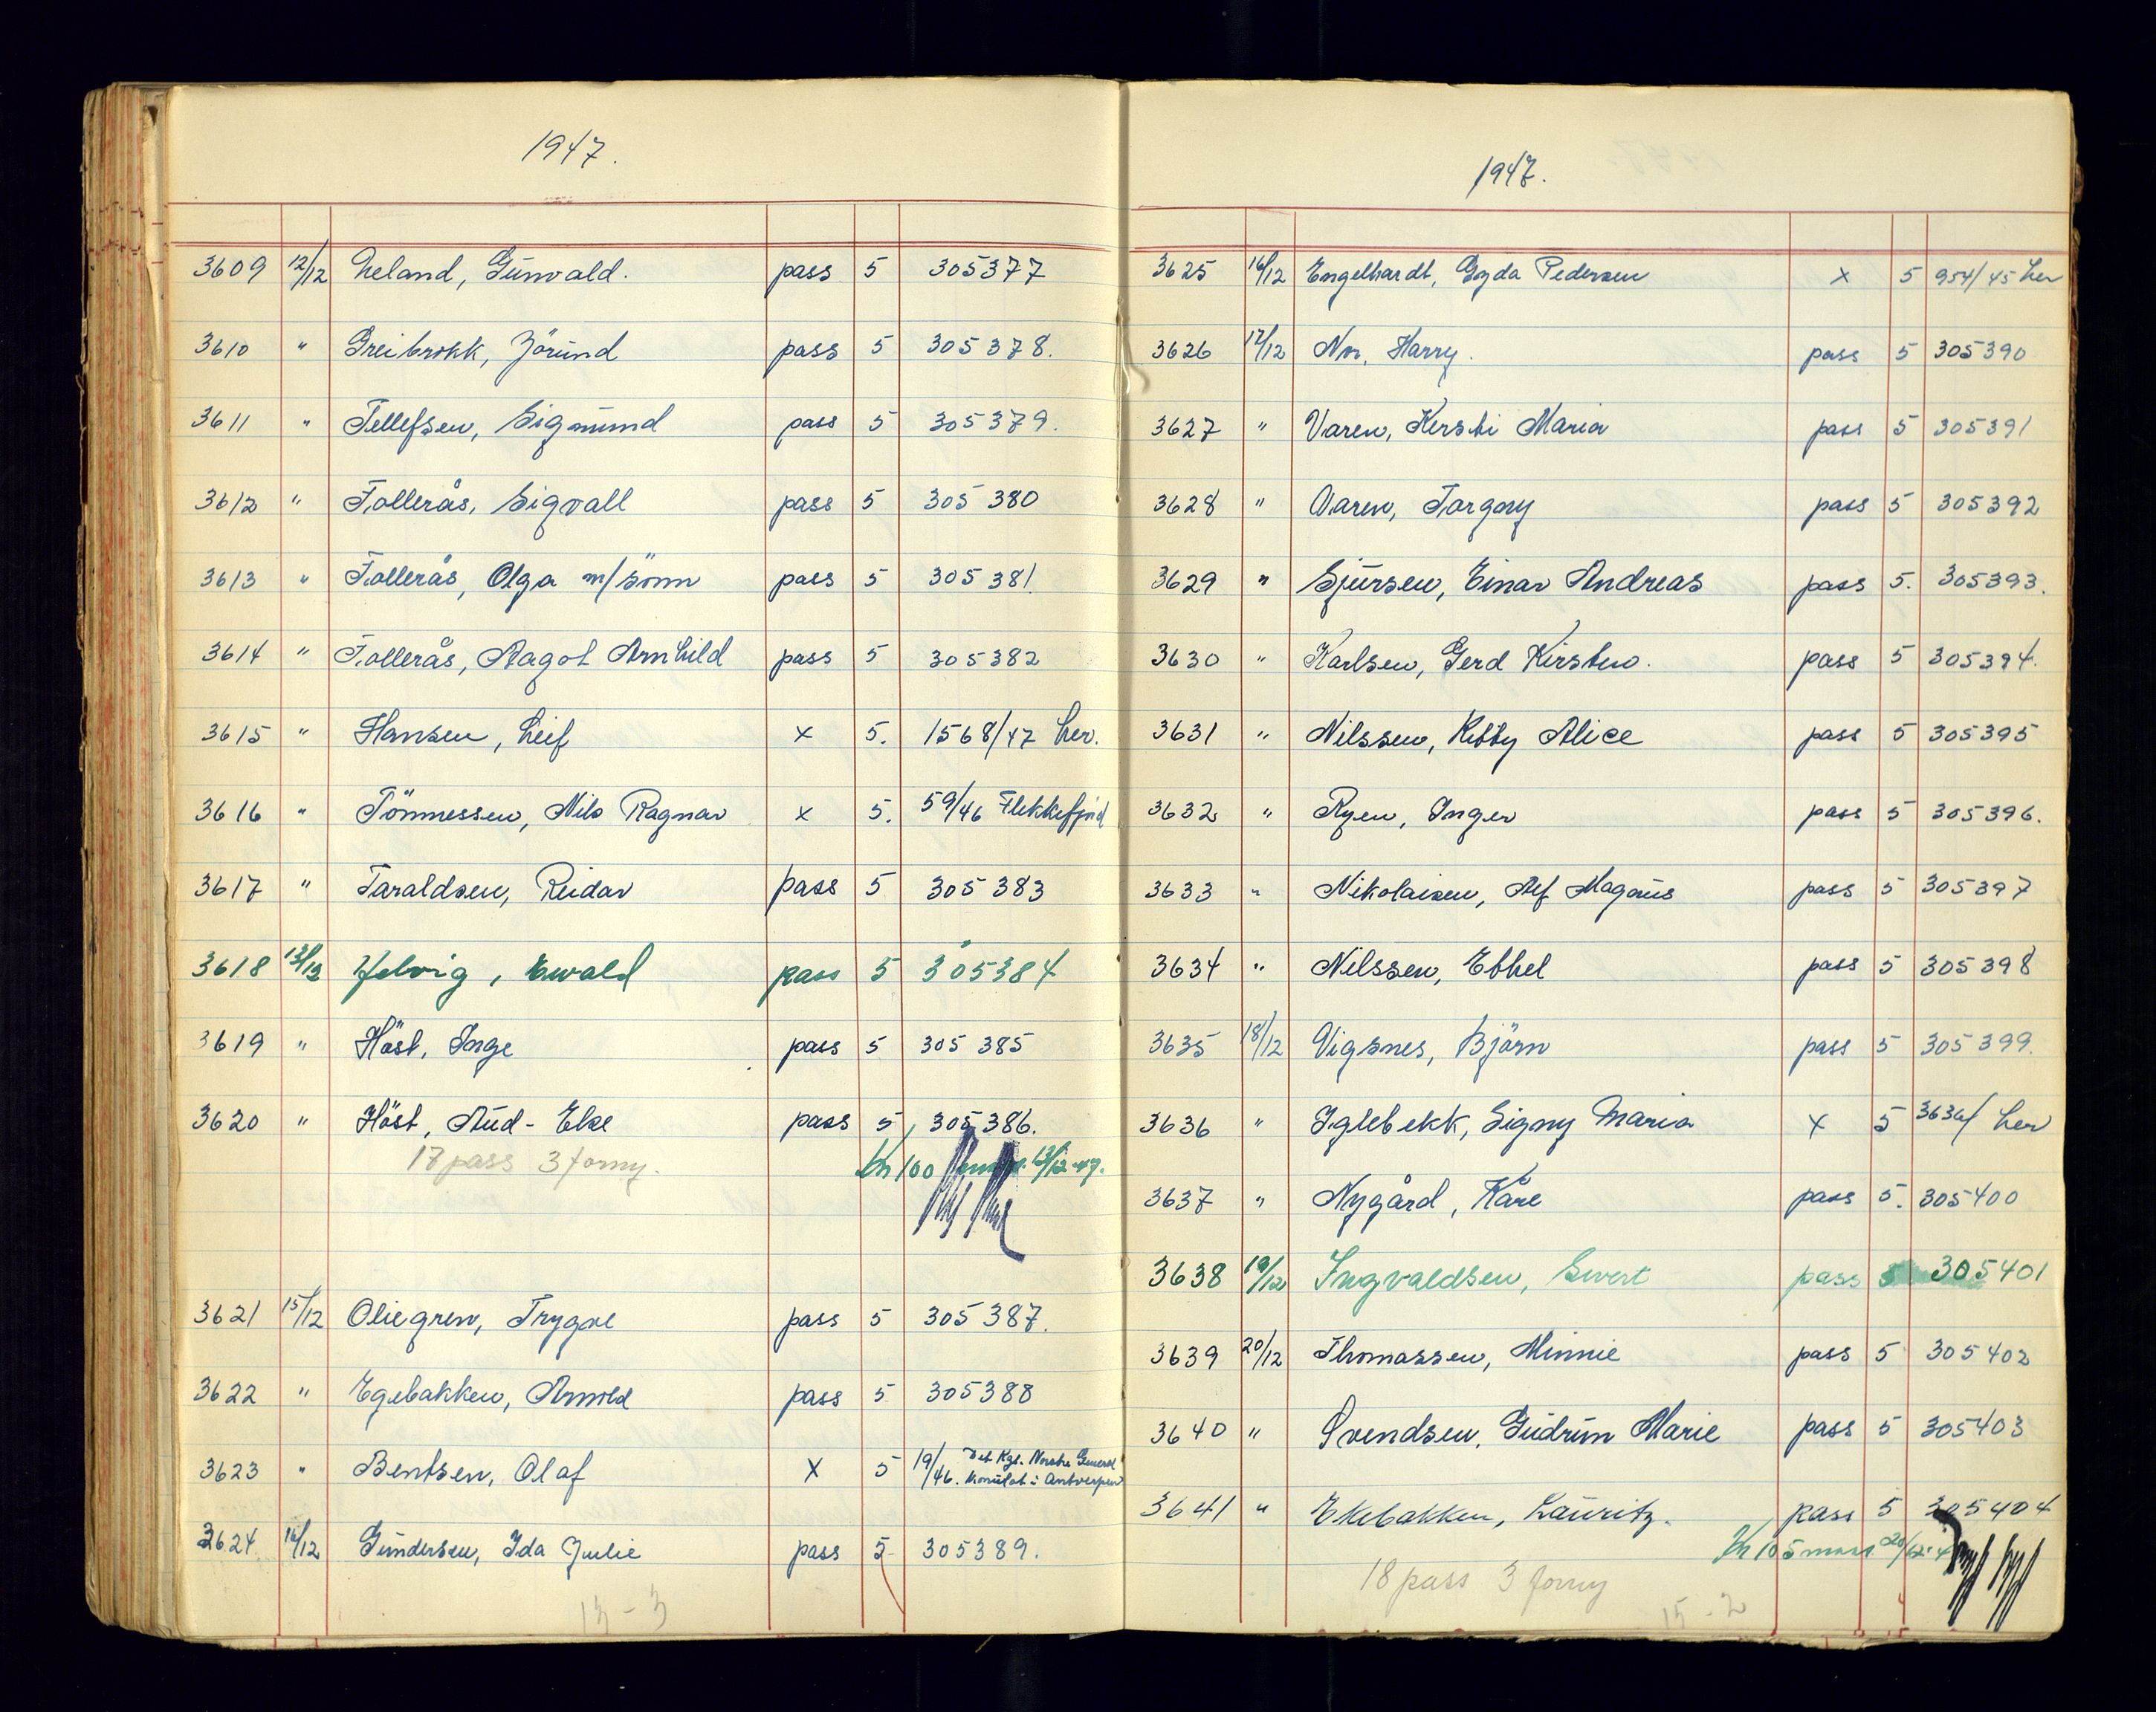 1947.
3609 12/12 Leland, Gunvald. pass 5 305377
3610 " Greibrokk, Jörund pass 5 305378.
3611 " Tellefsen, Sigmund pass 5 305379.
3612 " Tallerås, Sigvall pass 5 305380
3613 " Tallerås, Olga m/sönn pass 5 305381.
3614 " Tallerås, Aagot Arnhild pass 5 305382
3615 " Hansen, Leif x 5. 1568/47 her.
3616 " Tönnessen, Nils Ragnar x 5. 59/46 Flekkefjord
3617 " Taraldsen, Reidar pass 5 305383
3618 13/12 Ewald pass 5 305384
3619 " Höst, Inge pass 5 305385
3620 " Höst, Aud-Else pass 5 305386.
17 pass 3 forny. Kr 100 13/12-47.
3621 15/12 Oliegren, Trygve pass 5 305387.
3622 " Egebakken, Arnold pass 5 305388
3623 " Bentsen, Olaf x 5 19/46. Det Kgl. Norske General
Konsulat i Antwerpen
3624 16/12 Gundersen, Ida Julie pass 5 305389.
13-3
1947.
3625 16/12 Engelhardt, Gyda Pedersen x 5 954/45 her
3626 17/12 Harry. pass 5 305390
3627 " Varen, Kersti Maria pass 5 305391
3628 " Varen, Torgny pass 5 305392
3629 " Sjursen, Einar Andreas pass 5. 305393.
3630 " Karlsen, Gerd Kirsten. pass 5 305394.
3631 " Nilssen, Alice pass 5 305395
3632 " Ryen, Inger pass 5 305396.
3633 " Nikolaisen, Alf Magnus pass 5 305397
3634 " Nilssen, Ethel pass 5 305398
3635 18/12 Vigsnes, Björn pass 5 305399.
3636 " Iglebekk, Signy Maria x 5 her
3637 " Nygård, Kåre pass 5. 305400
3638 19/12 Ingvaldsen, Sivert pass 5 305401
3639 20/12 Thomassen, Minnie pass 5 305402
3640 " Svendsen, Gudrun Marie pass 5 305403
3641 " Ekebakken, Lauritz. pass 5 305404
Kr 105 20/12-4
18 pass 3 forny
15-2